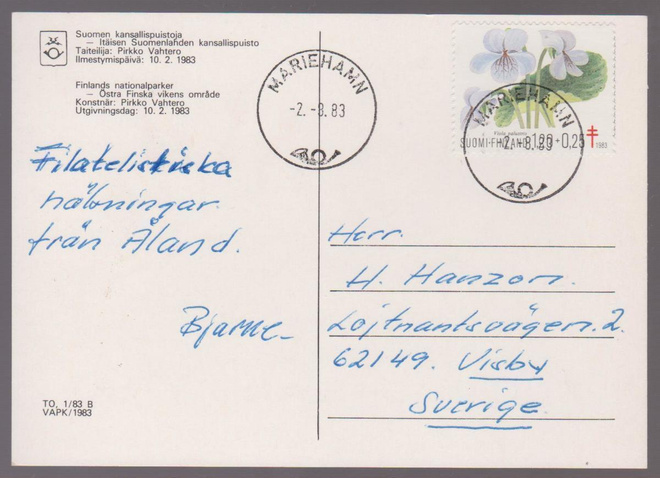 Suomen kansallispuistoja
— Itäisen Suomenlahden kansallispuisto
Taiteilija: Pirkko Vahtero
Ilmestymispäivä: 10. 2. 1983
Finlands nationalparker
— Östra Finska vikens område
Konstnär: Pirkko Vahtero
Utgivningsdag: 10. 2. 1983
MARIEHAMN
-2.-8.83
MARIEHAMN
-2.-8.83
SUOMI-FINLAND 1,20+0,25
1983
Filatelistiska
hälsningar
från Åland.
Bjarne
Herr.
H. Hanzon.
Löjtnantsvägen. 2.
62149. Visby
Sverige.
TO, 1/83 B
VAPK/1983